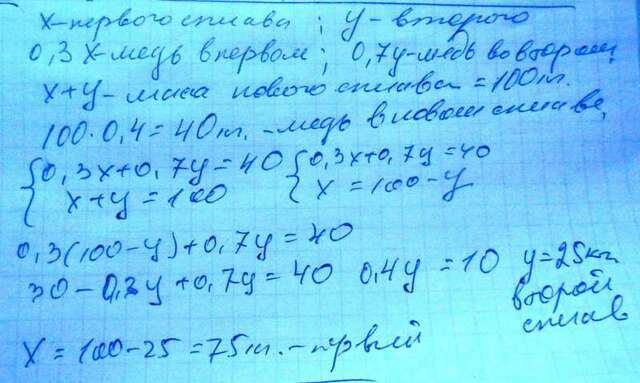 x-первого сплава ; y-второго
0,3x-медь в первом ; 0,7y-медь во втором;
x+y-масса нового сплава = 100кг.
100·0,4=40кг.-медь в новом сплаве,
{0,3x+0,7y=40 {0,3x+0,7y=40
x+y=100 x=100-y
0,3(100-y)+0,7y=40
30-0,3y+0,7y=40 0,4y=10 y=25кг.
второй
сплав
X=100-25=75кг.-первый